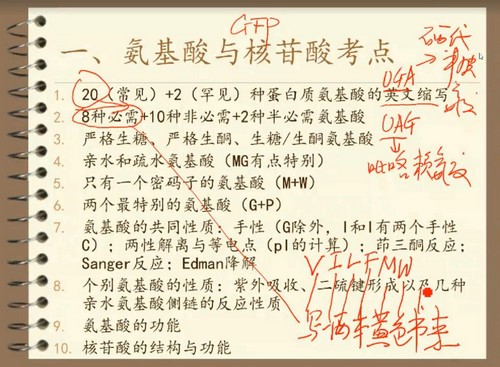 GFP
一、氨基酸与核苷酸考点
1. 20（常见）+2（罕见）种蛋白质氨基酸的英文缩写
2. 8种必需+10种非必需+2种半必需氨基酸
3. 严格生糖、严格生酮、生糖/生酮氨基酸
4. 亲水和疏水氨基酸（MG有点特别）
5. 只有一个密码子的氨基酸（M+W）
6. 两个最特别的氨基酸（G+P）
7. 氨基酸的共同性质：手性（G除外，I和I有两个手性
C）；两性解离与等电点（pI的计算）；茚三酮反应；
Sanger反应；Edman降解
8. 个别氨基酸的性质：紫外吸收、二硫键形成以及几种
亲水氨基酸侧链的反应性质
9. 氨基酸的功能
10. 核苷酸的结构与功能
UGA
→ 硒代
半胱
UAG
吡咯赖氨酸
VILFMW
写
黄色书来